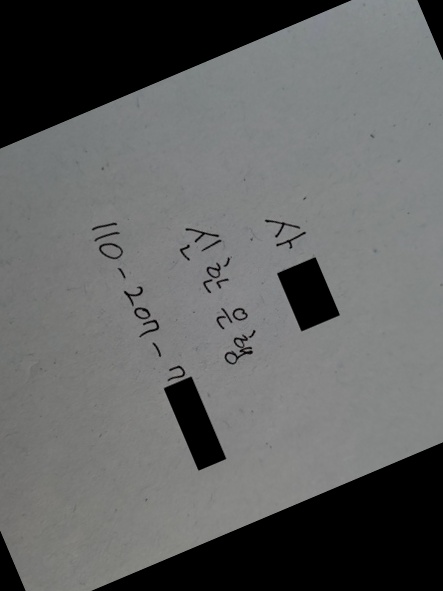 서
신한은행
110-207-7